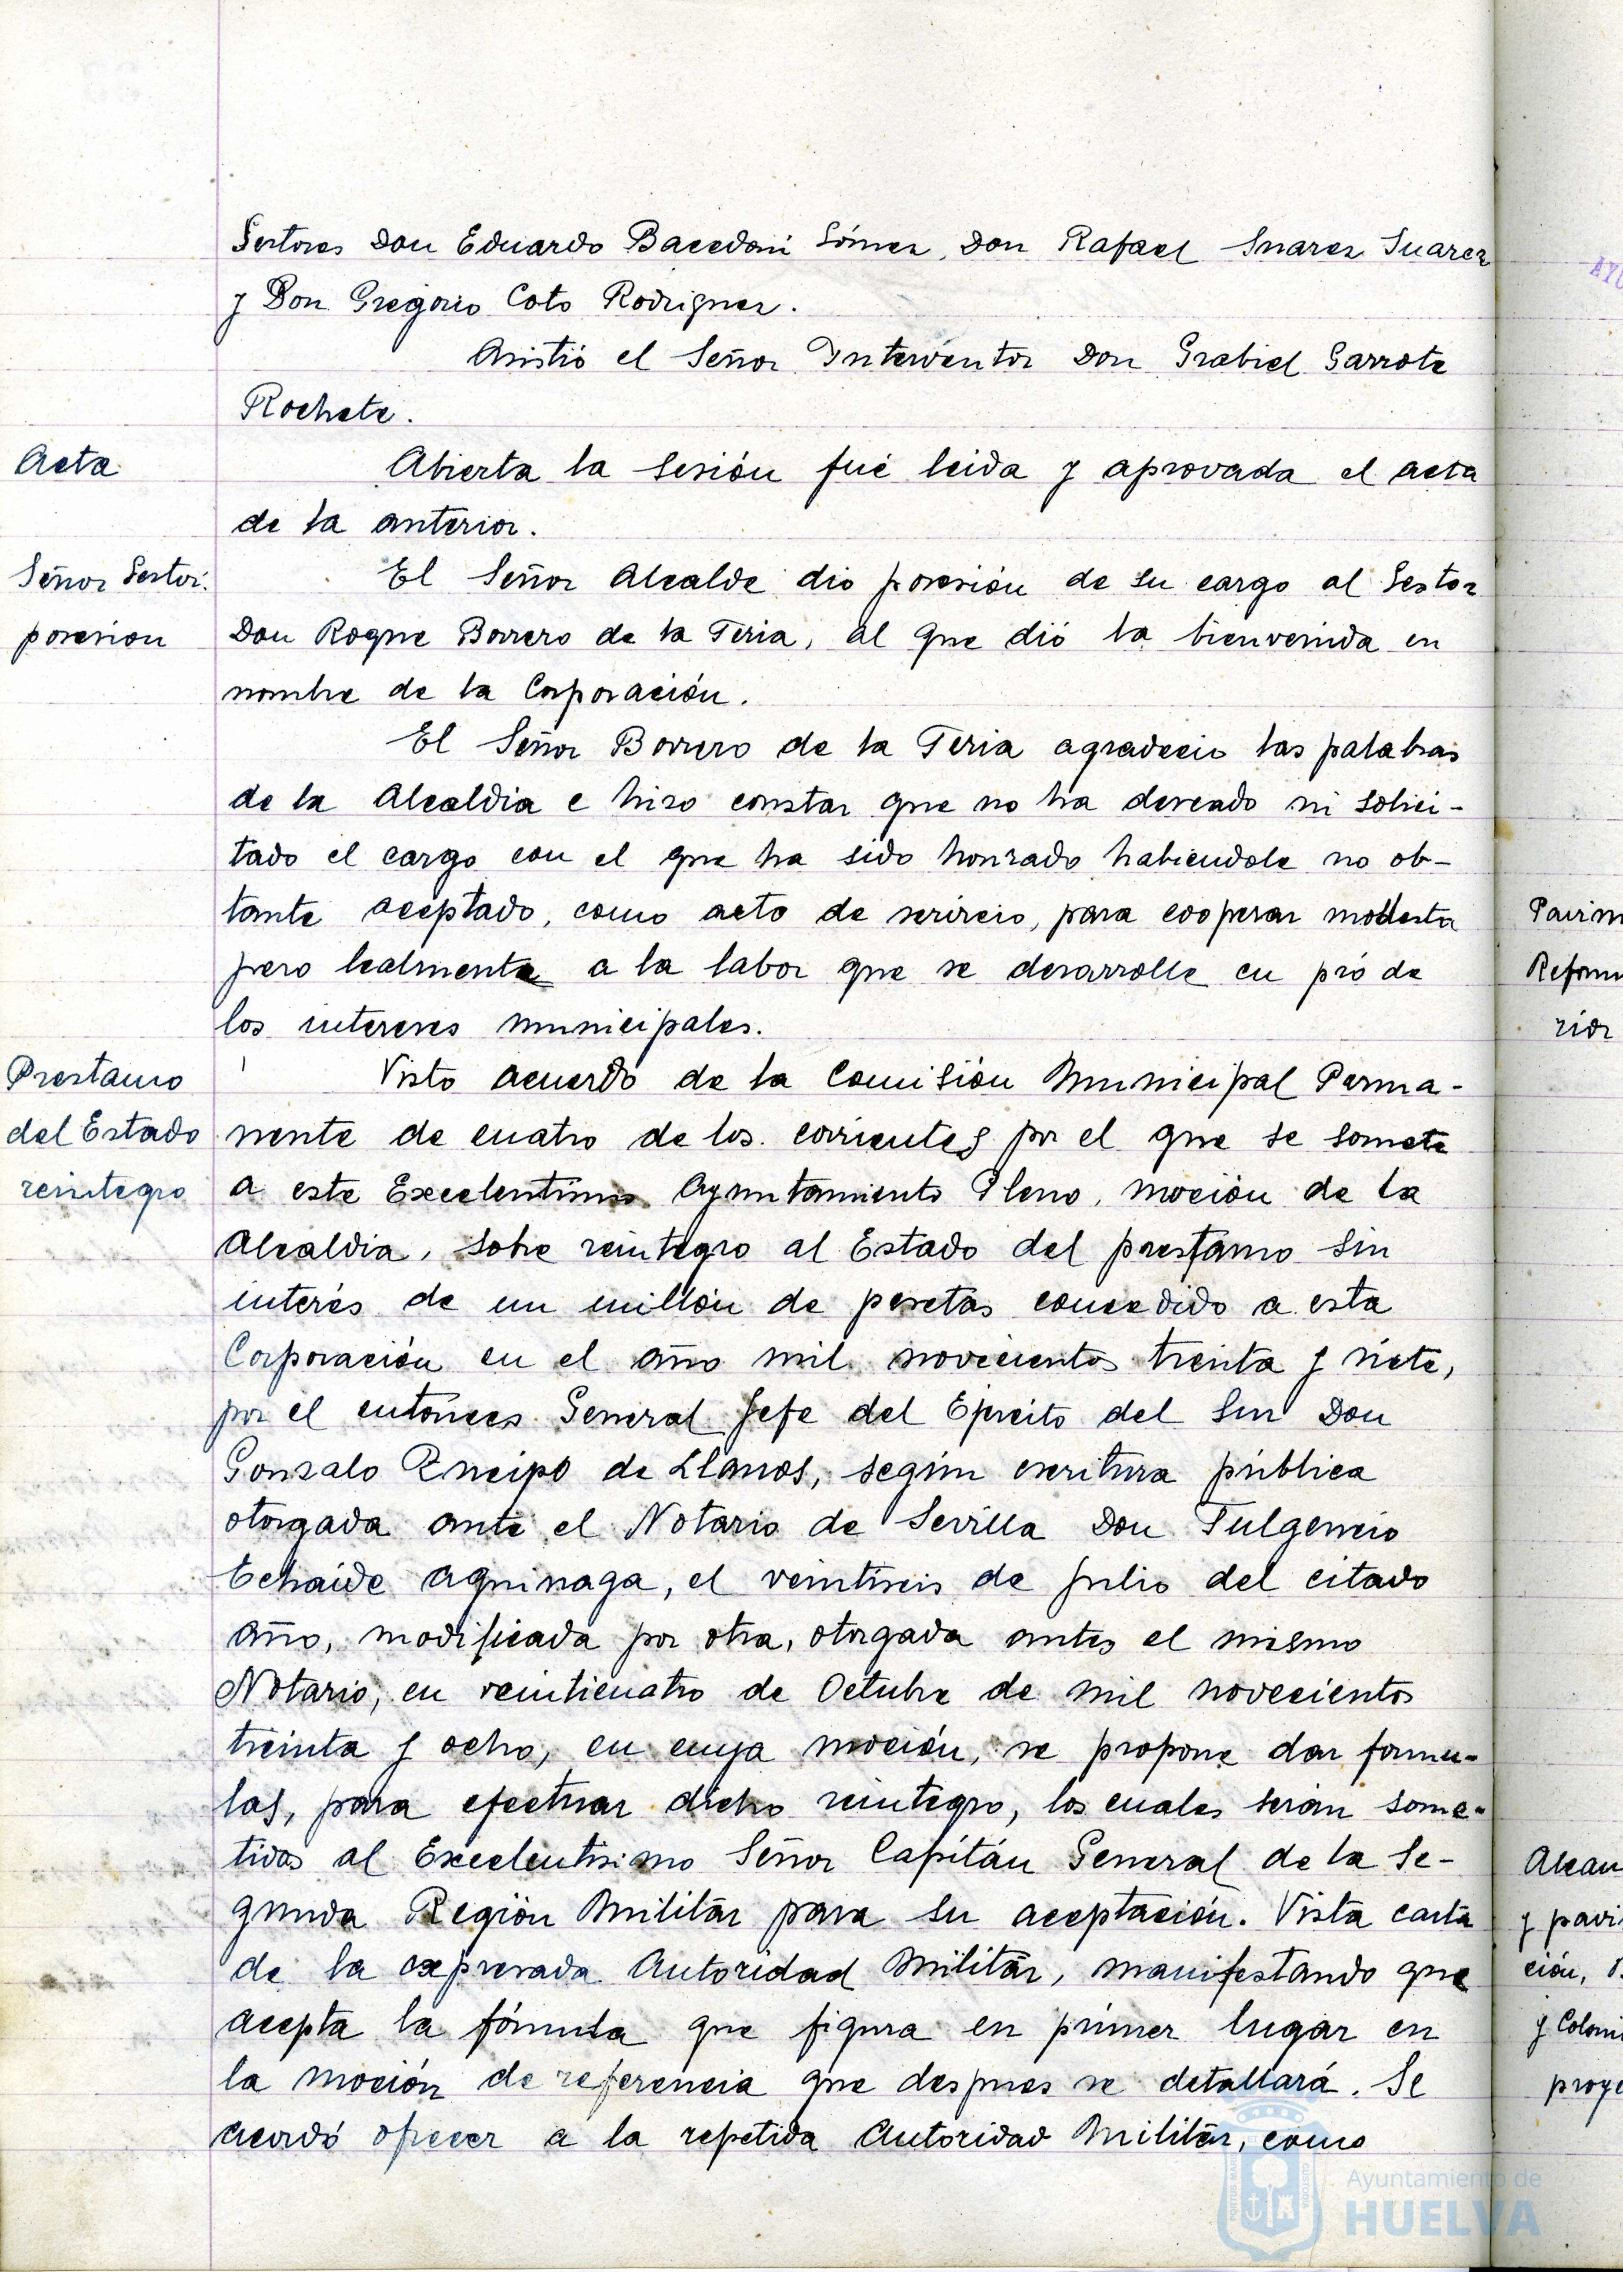 Gestores Don Eduardo Bacedoni Gómez, Don Rafael Suarez Suarez
y Don Gregorio Coto Rodriguez.
Asistió el Señor Interventor Don Grabiel Garrote
Rochete.
Acta
Abierta la sesión fué leida y aprovada el acta
de la anterior.
Señor Gestor.
posesion
El Señor Alcalde dio posesión de su cargo al Gestor
Don Roque Borrero de la Feria, al que dió la bienvenida en
nombre de la Corporación.
El Señor Borrero de la Feria agradecio las palabras
de la Alcaldia e hizo constar que no ha deseado ni solici-
tado el cargo con el que ha sido honrado habiendole no ob-
tante aceptado, como acto de servicio, para cooperar modesta
pero lealmente a la labor que se desarrolle en pró de
los intereses municipales.
Prestamo
del Estado
reintegro
Visto acuerdo de la Comisión Municipal Perma-
nente de cuatro de los corrientes por el que se somete
a este Excelentimo Ayuntamiento Pleno, moción de la
Alcaldia, sobre reintegro al Estado del prestamo sin
interés de un millón de pesetas concedido a esta
Corporación en el año mil novecientos treinta y siete,
por el entonces General Jefe del Ejercito del Sur Don
Gonzalo Queipo de Llanos, según escritura pública
otorgada ante el Notario de Sevilla Don Fulgencio
Echaide Aguinaga, el veintiseis de julio del citado
año, modificada por otra, otorgada antes el mismo
Notario, en veinticuatro de Octubre de mil novecientos
treinta y ocho, en cuya moción, se propone dar formu-
las, para efectuar dicho reintegro, los cuales serán some-
tidas al Excelentisimo Señor Capitán General de la Se-
gunda Región Militar para su aceptación. Vista carta
de la expresada Autoridad Militar, manifestando que
acepta la fórmula que figura en primer lugar en
la moción de referencia que despues se detallará. Se
acordó ofrecer a la repetida Autoridad Militar, como
Ayuntamiento de
HUELVA